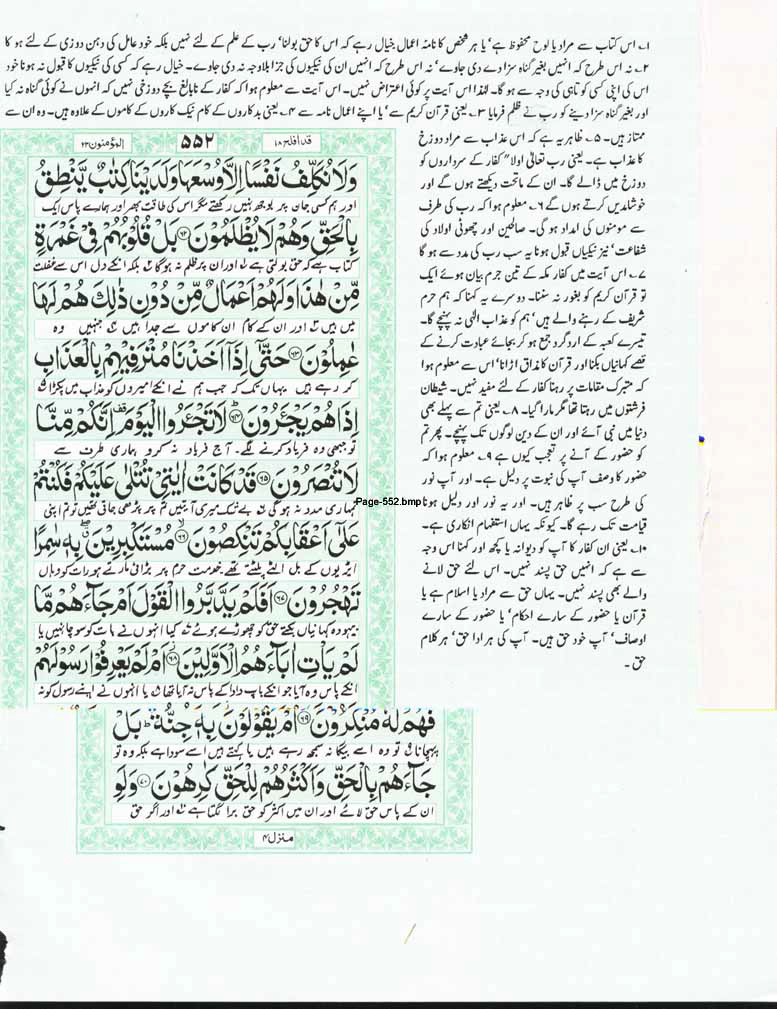 ۱۔ اس کتاب سے مراد یا لوح محفوظ ہے' یا ہر شخص کا نامہ اعمال خیال رہے کہ اس کا حق بولنا' رب کے علم کے لئے نہیں بلکہ خود عامل کی دہن دوزی کے لئے ہو گا
۲۔ نہ اس طرح کہ انہیں بغیر گناہ سزا دے دی جاوے' نہ اس طرح کہ انہیں ان کی نیکیوں کی جزا بلاوجہ نہ دی جاوے۔ خیال رہے کہ کسی کی نیکیوں کا قبول نہ ہونا خود
اس کی اپنی کسی کوتاہی کی وجہ سے ہو گا۔ لہٰذا اس آیت پر کوئی اعتراض نہیں۔ اس آیت سے معلوم ہوا کہ کفار کے نابالغ بچے دوزخی نہیں کہ انہوں نے کوئی گناہ نہ کیا
اور بغیر گناہ سزا دینے کو رب نے ظلم فرمایا ۳۔ یعنی قرآن کریم سے' یا اپنے اعمال نامہ سے ۴۔ یعنی بدکاروں کے کام نیک کاروں کے کاموں کے علاوہ ہیں۔ وہ ان سے
ممتاز ہیں۔ ۵۔ ظاہر یہ ہے کہ اس عذاب سے مراد دوزخ
کا عذاب ہے۔ یعنی رب تعالٰی اولاً" کفار کے سرداروں کو
دوزخ میں ڈالے گا۔ ان کے ماتحت دیکھتے ہوں گے اور
خوشامدیں کرتے ہوں گے ۶۔ معلوم ہوا کہ رب کی طرف
سے مومنوں کی امداد ہو گی۔ صالحین اور چھوٹی اولاد کی
شفاعت' نیز نیکیاں قبول ہونا یہ سب رب کی مدد سے ہو گا
۷۔ اس آیت میں کفار مکہ کے تین جرم بیان ہوئے ایک
تو قرآن کریم کو بغور نہ سننا۔ دوسرے یہ کہنا کہ ہم حرم
شریف کے رہنے والے ہیں' ہم کو عذاب الٰہی نہ پہنچے گا۔
تیسرے کعبہ کے اردگرد جمع ہو کر بجائے عبادت کرنے کے
قصے کہانیاں بکنا اور قرآن کا مذاق اڑانا' اس سے معلوم ہوا
کہ متبرک مقامات پر رہنا کفار کے لئے مفید نہیں۔ شیطان
فرشتوں میں رہتا تھا مگر مارا گیا۔ ۸۔ یعنی تم سے پہلے بھی
دنیا میں نبی آئے اور ان کے دین لوگوں تک پہنچے۔ پھر تم
کو حضور کے آنے پر تعجب کیوں ہے ۹۔ معلوم ہوا کہ
حضور کا وصف آپ کی نبوت پر دلیل ہے۔ اور آپ نور
کی طرح سب پر ظاہر ہیں۔ اور یہ نور اور دلیل ہونا
قیامت تک رہے گا۔ کیونکہ یہاں استفہام انکاری ہے۔
۱۰۔ یعنی ان کفار کا آپ کو دیوانہ یا کچھ اور کہنا اس وجہ
سے ہے کہ انہیں حق پسند نہیں۔ اس لئے حق لانے
والے بھی پسند نہیں۔ یہاں حق سے مراد یا اسلام ہے یا
قرآن یا حضور کے سارے احکام' یا حضور کے سارے
اوصاف' آپ خود حق ہیں۔ آپ کی ہر ادا حق' ہر کلام
حق۔
قد افلح ۱۸ ۵۵۲ المؤمنون ۲۳
وَلَا نُكَلِّفُ نَفْسًا اِلَّا وُسْعَهَا وَلَدَيْنَا كِتٰبٌ يَّنْطِقُ
اور ہم کسی جان پر بوجھ نہیں رکھتے مگر اس کی طاقت بھر اور ہمارے پاس ایک
بِالْحَقِّ وَهُمْ لَا يُظْلَمُوْنَ ۶۲ بَلْ قُلُوْبُهُمْ فِيْ غَمْرَةٍ
کتاب ہے کہ حق بولتی ہے اور ان پر ظلم نہ ہو گا بلکہ انکے دل اس سے غفلت
مِّنْ هٰذَا وَلَهُمْ اَعْمَالٌ مِّنْ دُوْنِ ذٰلِكَ هُمْ لَهَا
میں ہیں اور ان کے کام ان کاموں سے جدا ہیں جنہیں وہ
عٰمِلُوْنَ ۶۳ حَتّٰٓى اِذَآ اَخَذْنَا مُتْرَفِيْهِمْ بِالْعَذَابِ
کر رہے ہیں یہاں تک کہ جب ہم نے انکے امیروں کو عذاب میں پکڑا
اِذَا هُمْ يَجْـَٔرُوْنَ ۶۴ لَا تَجْـَٔرُوا الْيَوْمَ اِنَّكُمْ مِّنَّا
تو جبھی وہ فریاد کرنے لگے۔ آج فریاد نہ کرو ہماری طرف سے
لَا تُنْصَرُوْنَ ۶۵ قَدْ كَانَتْ اٰيٰتِيْ تُتْلٰى عَلَيْكُمْ فَكُنْتُمْ
تمہاری مدد نہ ہو گی بے شک میری آیتیں تم پر پڑھی جاتی تھیں تو تم اپنی
Page-552.bmp
عَلٰٓى اَعْقَابِكُمْ تَنْكِصُوْنَ ۶۶ مُسْتَكْبِرِيْنَ بِهٖ سٰمِرًا
ایڑیوں کے بل الٹے پلٹتے تھے خدمت حرم پر بڑائی مارتے ہو رات کو وہاں
تَهْجُرُوْنَ ۶۷ اَفَلَمْ يَدَّبَّرُوا الْقَوْلَ اَمْ جَآءَهُمْ مَّا
بیہودہ کہانیاں بکتے حق کو چھوڑے ہوئے کیا انہوں نے بات کو سوچا نہیں یا
لَمْ يَاْتِ اٰبَآءَهُمُ الْاَوَّلِيْنَ ۶۸ اَمْ لَمْ يَعْرِفُوْا رَسُوْلَهُمْ
انکے پاس وہ آیا جو انکے باپ دادا کے پاس نہ آیا تھا یا انہوں نے اپنے رسول کو نہ
فَهُمْ لَهٗ مُنْكِرُوْنَ ۶۹ اَمْ يَقُوْلُوْنَ بِهٖ جِنَّةٌ بَلْ
پہچانا تو وہ اسے بیگانہ سمجھ رہے ہیں یا کہتے ہیں اسے سودا ہے بلکہ وہ تو
جَآءَهُمْ بِالْحَقِّ وَاَكْثَرُهُمْ لِلْحَقِّ كٰرِهُوْنَ ۷۰ وَلَوِ
ان کے پاس حق لائے اور ان میں اکثر کو حق برا لگتا ہے اور اگر حق
منزل ۴